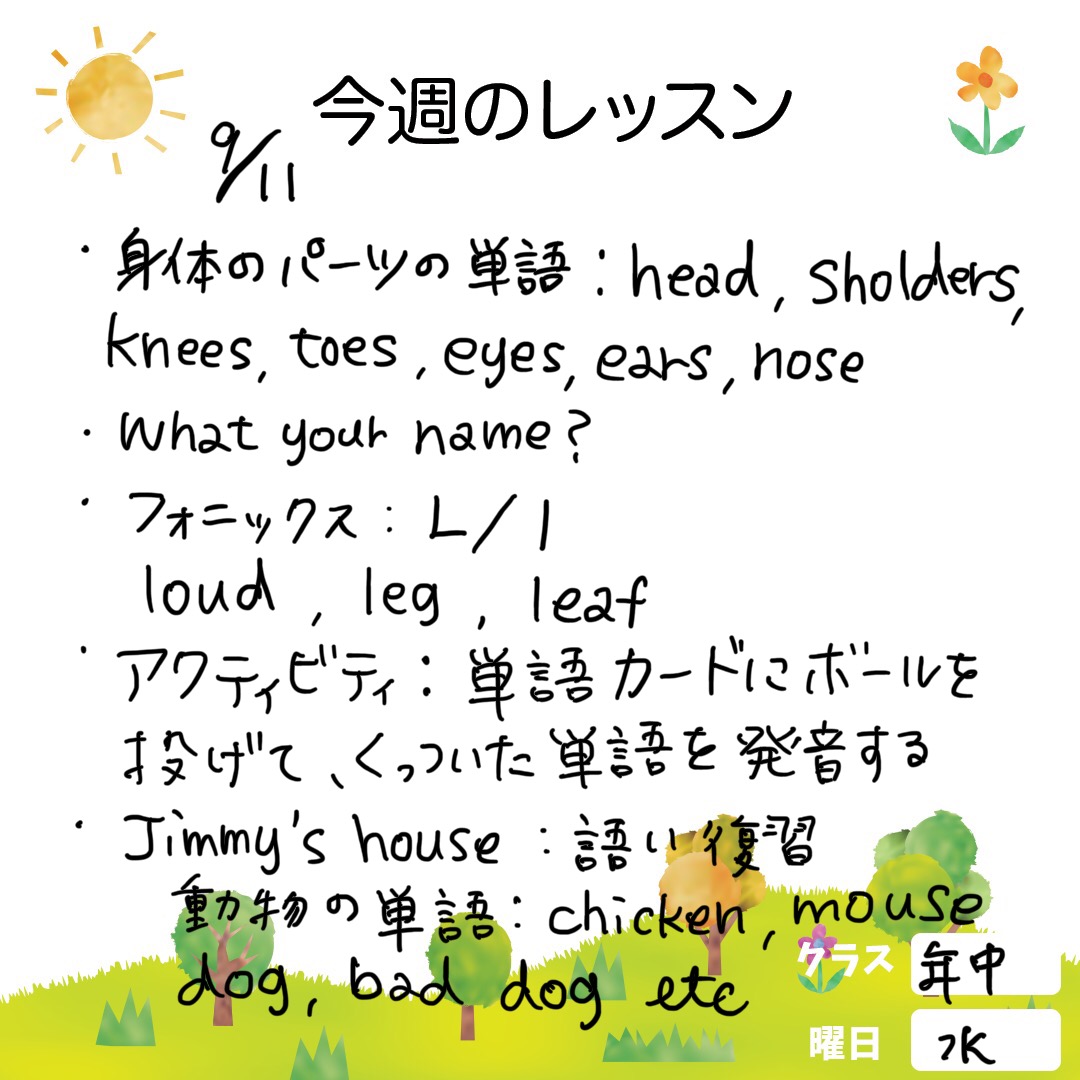 今週のレッスン
9/11
・身体のパーツの単語：head, sholders,
knees, toes, eyes, ears, nose
・What your name?
・フォニックス：L/l
loud, leg, leaf
・アクティビティ：単語カードにボールを
投げて、くっついた単語を発音する
・Jimmy's house：語い復習
動物の単語：chicken, mouse
dog, bad dog etc
クラス 年中
曜日 水